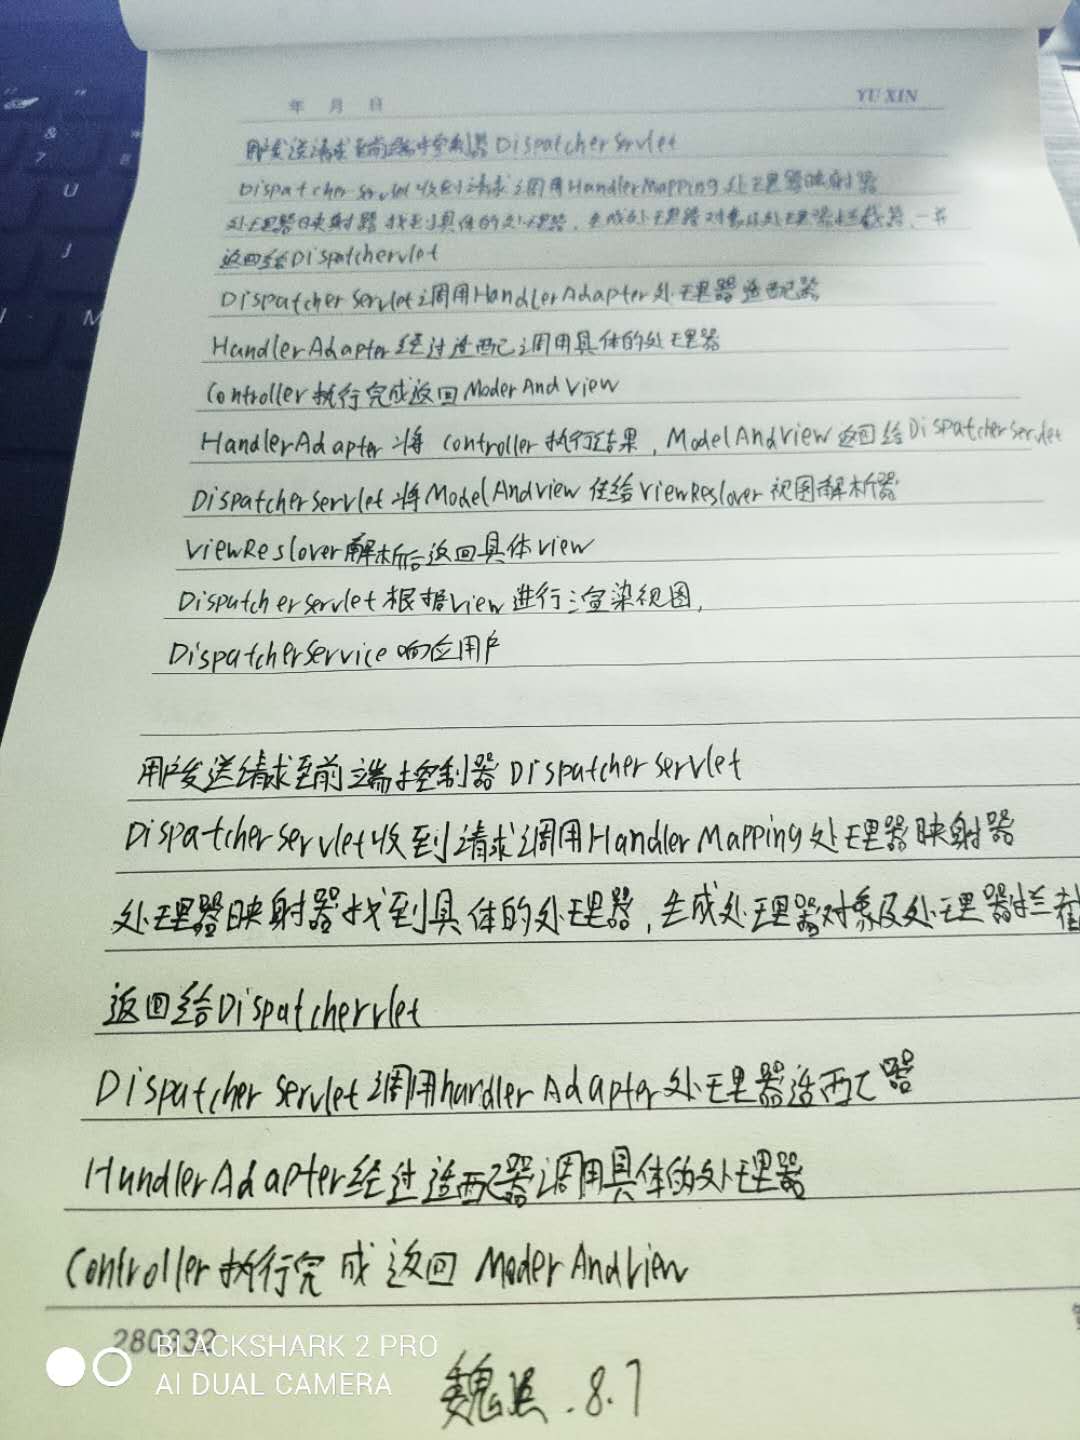 年 月 日 YU XIN
用户发送请求至前端控制器DispatcherServlet
DispatcherServlet收到请求调用HandlerMapping处理器映射器
处理器映射器找到具体的处理器,生成处理器对象及处理器拦截器,一并
返回给DispatcherVlet
DispatcherServlet调用HandlerAdapter处理器适配器
HandlerAdapter经过适配调用具体的处理器
Controller执行完成返回ModerAndView
HandlerAdapter将controller执行结果,ModelAndView返回给DispatcherServlet
DispatcherServlet将ModelAndView传给ViewReslover视图解析器
ViewReslover解析后返回具体View
DispatcherServlet根据View进行渲染视图,
DispatcherService响应用户
用户发送请求至前端控制器DispatcherServlet
DispatcherServlet收到请求调用HandlerMapping处理器映射器
处理器映射器找到具体的处理器,生成处理器对象及处理器拦截
返回给Dispatchervlet
DispatcherServlet调用handlerAdapter处理器适配器
HandlerAdapter经过适配器调用具体的处理器
Controller执行完成返回ModerAndView
280332
BLACKSHARK 2 PRO
AI DUAL CAMERA
魏 .8.7